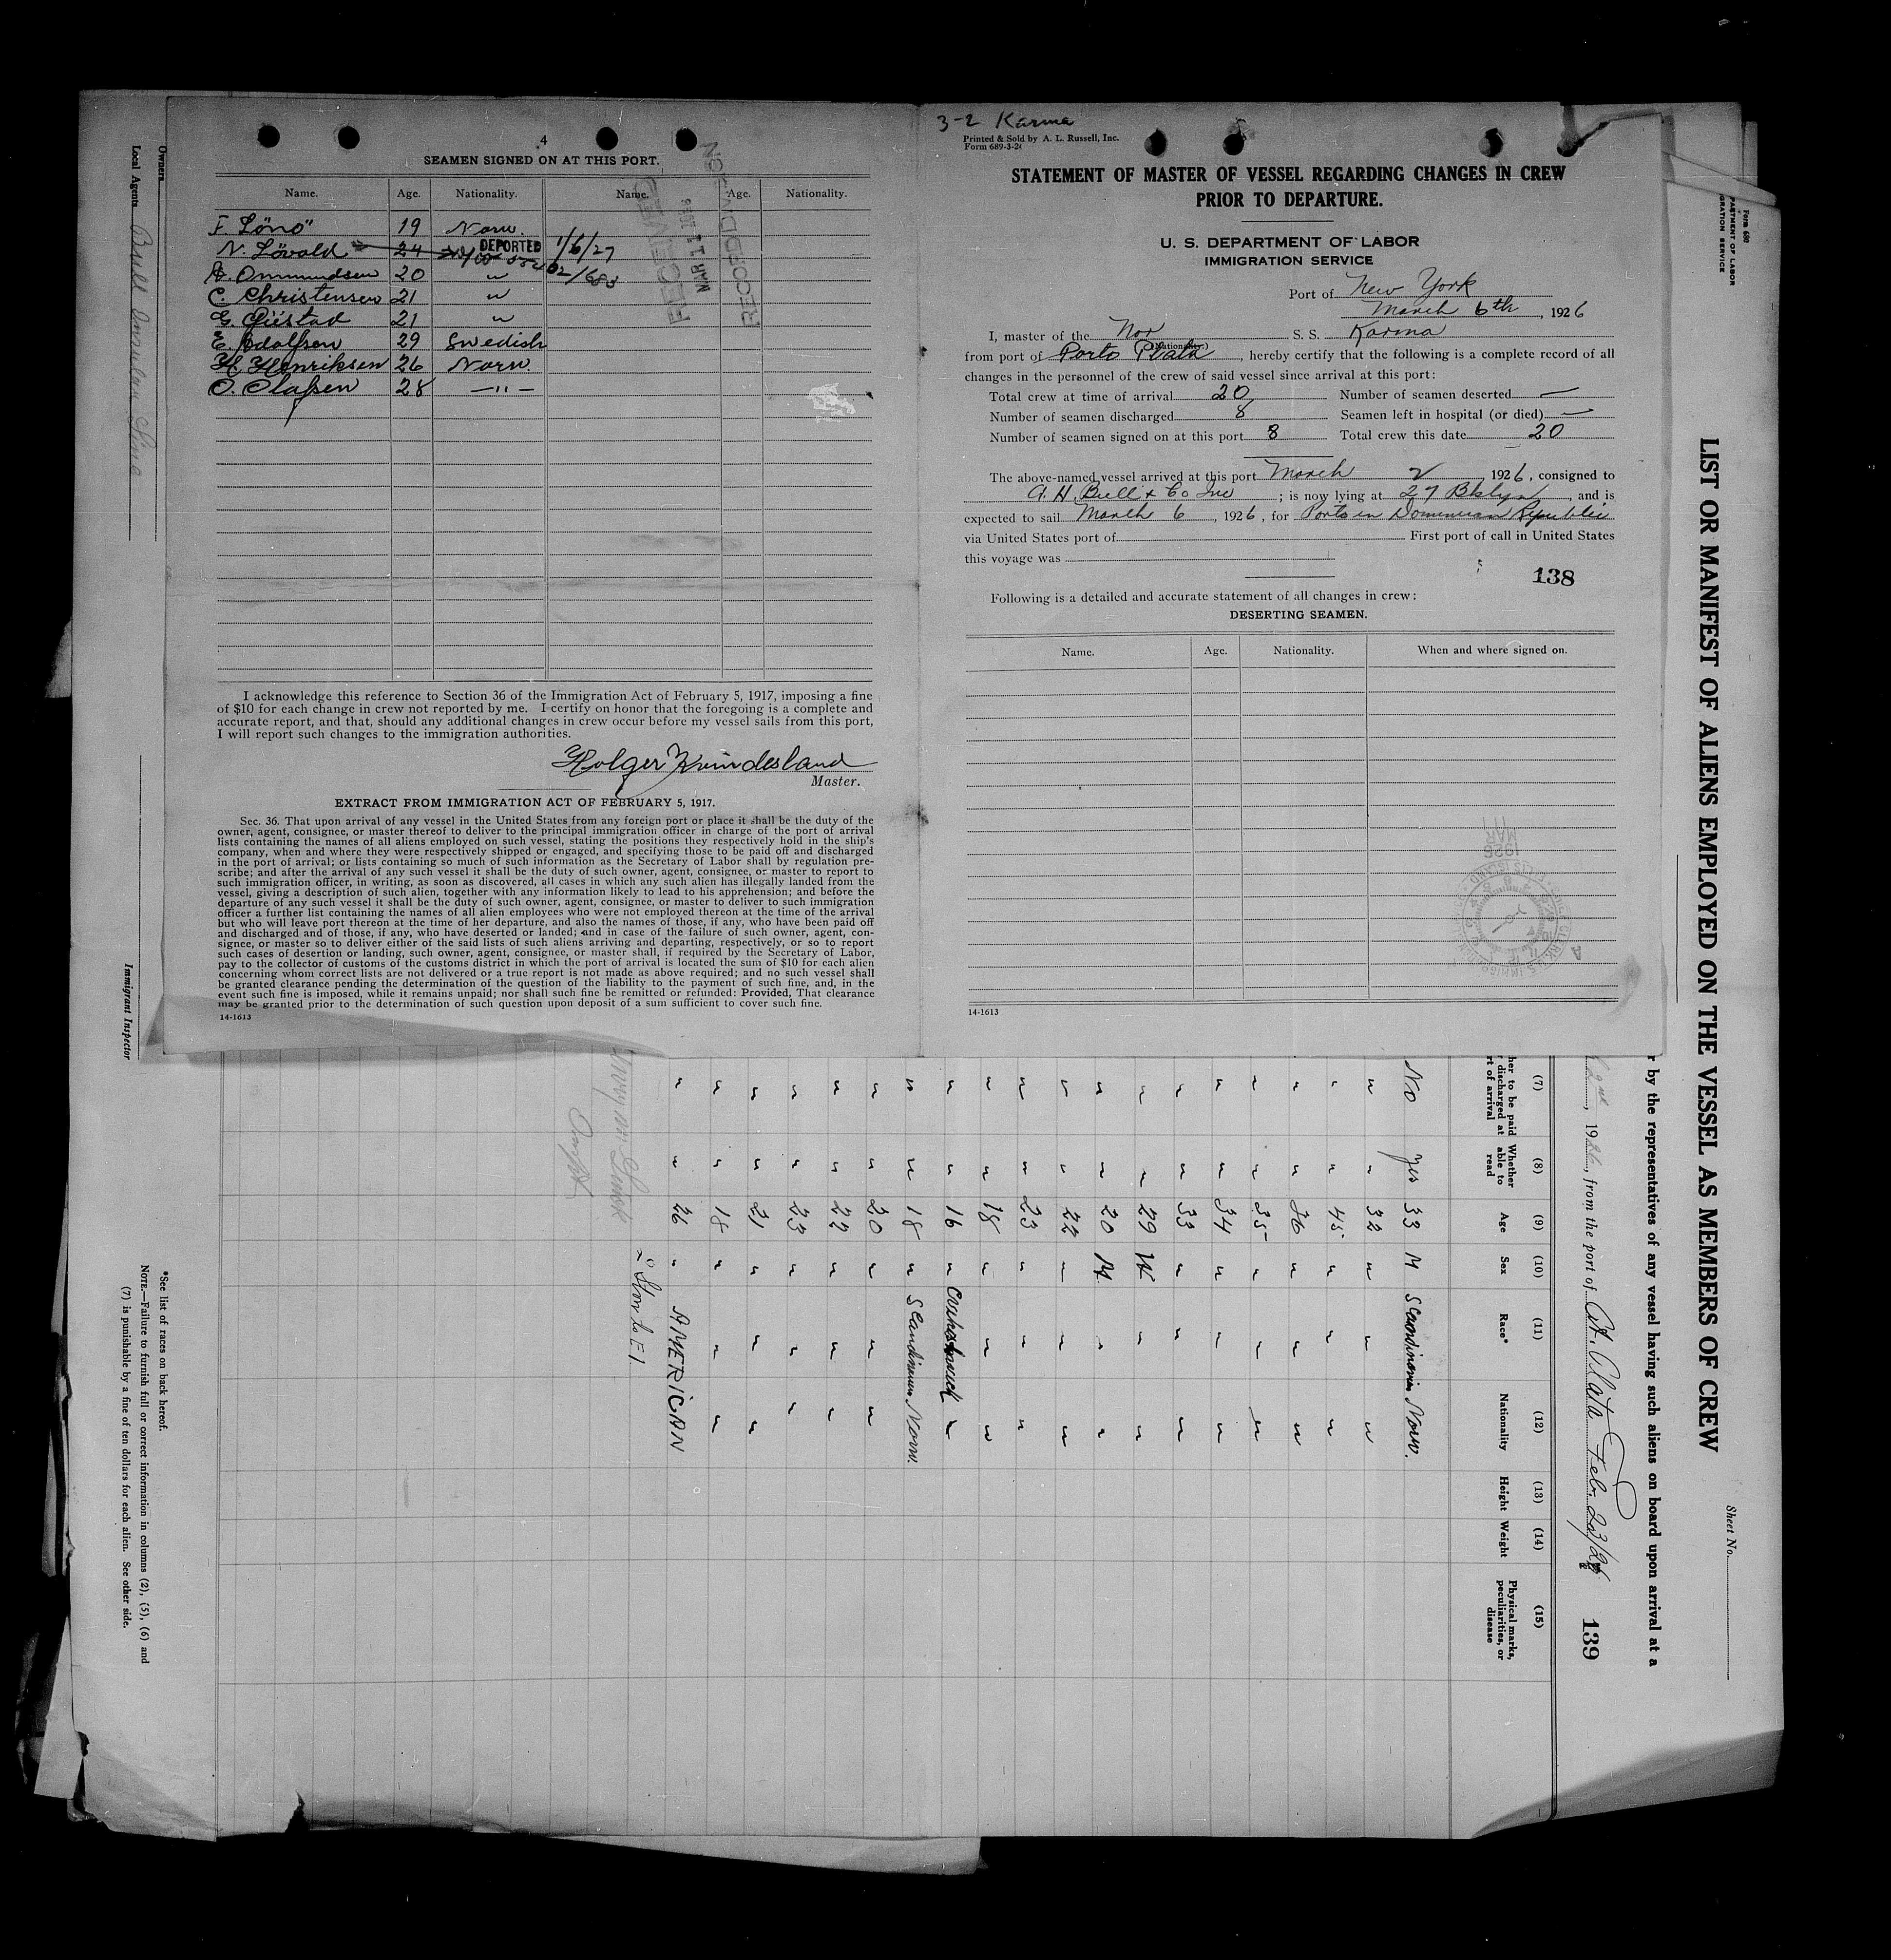 4
SEAMEN SIGNED ON AT THIS PORT.
Name. Age. Nationality. Name. Age. Nationality.
F. Lönö 19 Norw.
N. Lövold 24 DEPORTED 1/6/27
A. Ommundsen 20 "
C. Christensen 21 "
G. Giistad 21 "
E. Adolfsen 29 Swedish
H. Henriksen 26 Norw.
O. Olafsen 28 —"—
RECEIVED
MAR 11 1926
RECORD DIVISION
I acknowledge this reference to Section 36 of the Immigration Act of February 5, 1917, imposing a fine
of $10 for each change in crew not reported by me. I certify on honor that the foregoing is a complete and
accurate report, and that, should any additional changes in crew occur before my vessel sails from this port,
I will report such changes to the immigration authorities.
Holger Kvindesland
Master.
EXTRACT FROM IMMIGRATION ACT OF FEBRUARY 5, 1917.
Sec. 36. That upon arrival of any vessel in the United States from any foreign port or place it shall be the duty of the
owner, agent, consignee, or master thereof to deliver to the principal immigration officer in charge of the port of arrival
lists containing the names of all aliens employed on such vessel, stating the positions they respectively hold in the ship's
company, when and where they were respectively shipped or engaged, and specifying those to be paid off and discharged
in the port of arrival; or lists containing so much of such information as the Secretary of Labor shall by regulation pre-
scribe; and after the arrival of any such vessel it shall be the duty of such owner, agent, consignee, or master to report to
such immigration officer, in writing, as soon as discovered, all cases in which any such alien has illegally landed from the
vessel, giving a description of such alien, together with any information likely to lead to his apprehension; and before the
departure of any such vessel it shall be the duty of such owner, agent, consignee, or master to deliver to such immigration
officer a further list containing the names of all alien employees who were not employed thereon at the time of the arrival
but who will leave port thereon at the time of her departure, and also the names of those, if any, who have been paid off
and discharged and of those, if any, who have deserted or landed; and in case of the failure of such owner, agent, con-
signee, or master so to deliver either of the said lists of such aliens arriving and departing, respectively, or so to report
such cases of desertion or landing, such owner, agent, consignee, or master shall, if required by the Secretary of Labor,
pay to the collector of customs of the customs district in which the port of arrival is located the sum of $10 for each alien
concerning whom correct lists are not delivered or a true report is not made as above required; and no such vessel shall
be granted clearance pending the determination of the question of the liability to the payment of such fine, and, in the
event such fine is imposed, while it remains unpaid; nor shall such fine be remitted or refunded: Provided, That clearance
may be granted prior to the determination of such question upon deposit of a sum sufficient to cover such fine.
14-1613
3-2 Karma
Printed & Sold by A. L. Russell, Inc.
Form 689-3-2
STATEMENT OF MASTER OF VESSEL REGARDING CHANGES IN CREW
PRIOR TO DEPARTURE.
U. S. DEPARTMENT OF LABOR
IMMIGRATION SERVICE
Port of New York
March 6th, 1926
I, master of the Nor S. S. Karma
(Nationality)
from port of Porto Plata, hereby certify that the following is a complete record of all
changes in the personnel of the crew of said vessel since arrival at this port:
Total crew at time of arrival 20 Number of seamen deserted —
Number of seamen discharged 8 Seamen left in hospital (or died) —
Number of seamen signed on at this port 8 Total crew this date 20
The above-named vessel arrived at this port March 2, 1926, consigned to
A. H. Bull & Co Inc; is now lying at 27 Bklyn, and is
expected to sail March 6, 1926, for Ports in Dominican Republic
via United States port of First port of call in United States
this voyage was
138
Following is a detailed and accurate statement of all changes in crew:
DESERTING SEAMEN.
Name. Age. Nationality. When and where signed on.
MAR 11 1926
14-1613
Form 680
LIST OR MANIFEST OF ALIENS EMPLOYED ON THE VESSEL AS MEMBERS OF CREW
Sheet No.
r by the representatives of any vessel having such aliens on board upon arrival at a
2nd, 1926, from the port of Pt. Plata Feb. 23/26
139
(7) (8) (9) (10) (11) (12) (13) (14) (15)
Whether able to read Age Sex Race* Nationality Height Weight Physical marks, peculiarities, or disease
No Yes 33 M Scandinavian Norw.
" " 32 " " "
" " 45 " " "
" " 36 " " "
" " 35 " " "
" " 34 " " "
" " 33 " " "
" " 29 M " "
" " 20 M " "
" " 22 " " "
" " 23 " " "
" " 18 " " "
" " 16 " "
" " 18 " Scandinavian Norw.
" " 20 " " "
" " 22 " " "
" " 23 " " "
" " 21 " " "
" " 18 " " "
" " 26 " AMERICAN
*See list of races on back hereof.
NOTE.—Failure to furnish full or correct information in columns (2), (5), (6) and
(7) is punishable by a fine of ten dollars for each alien. See other side.
Owners
Local Agents Bull Insular Line
Immigrant Inspector